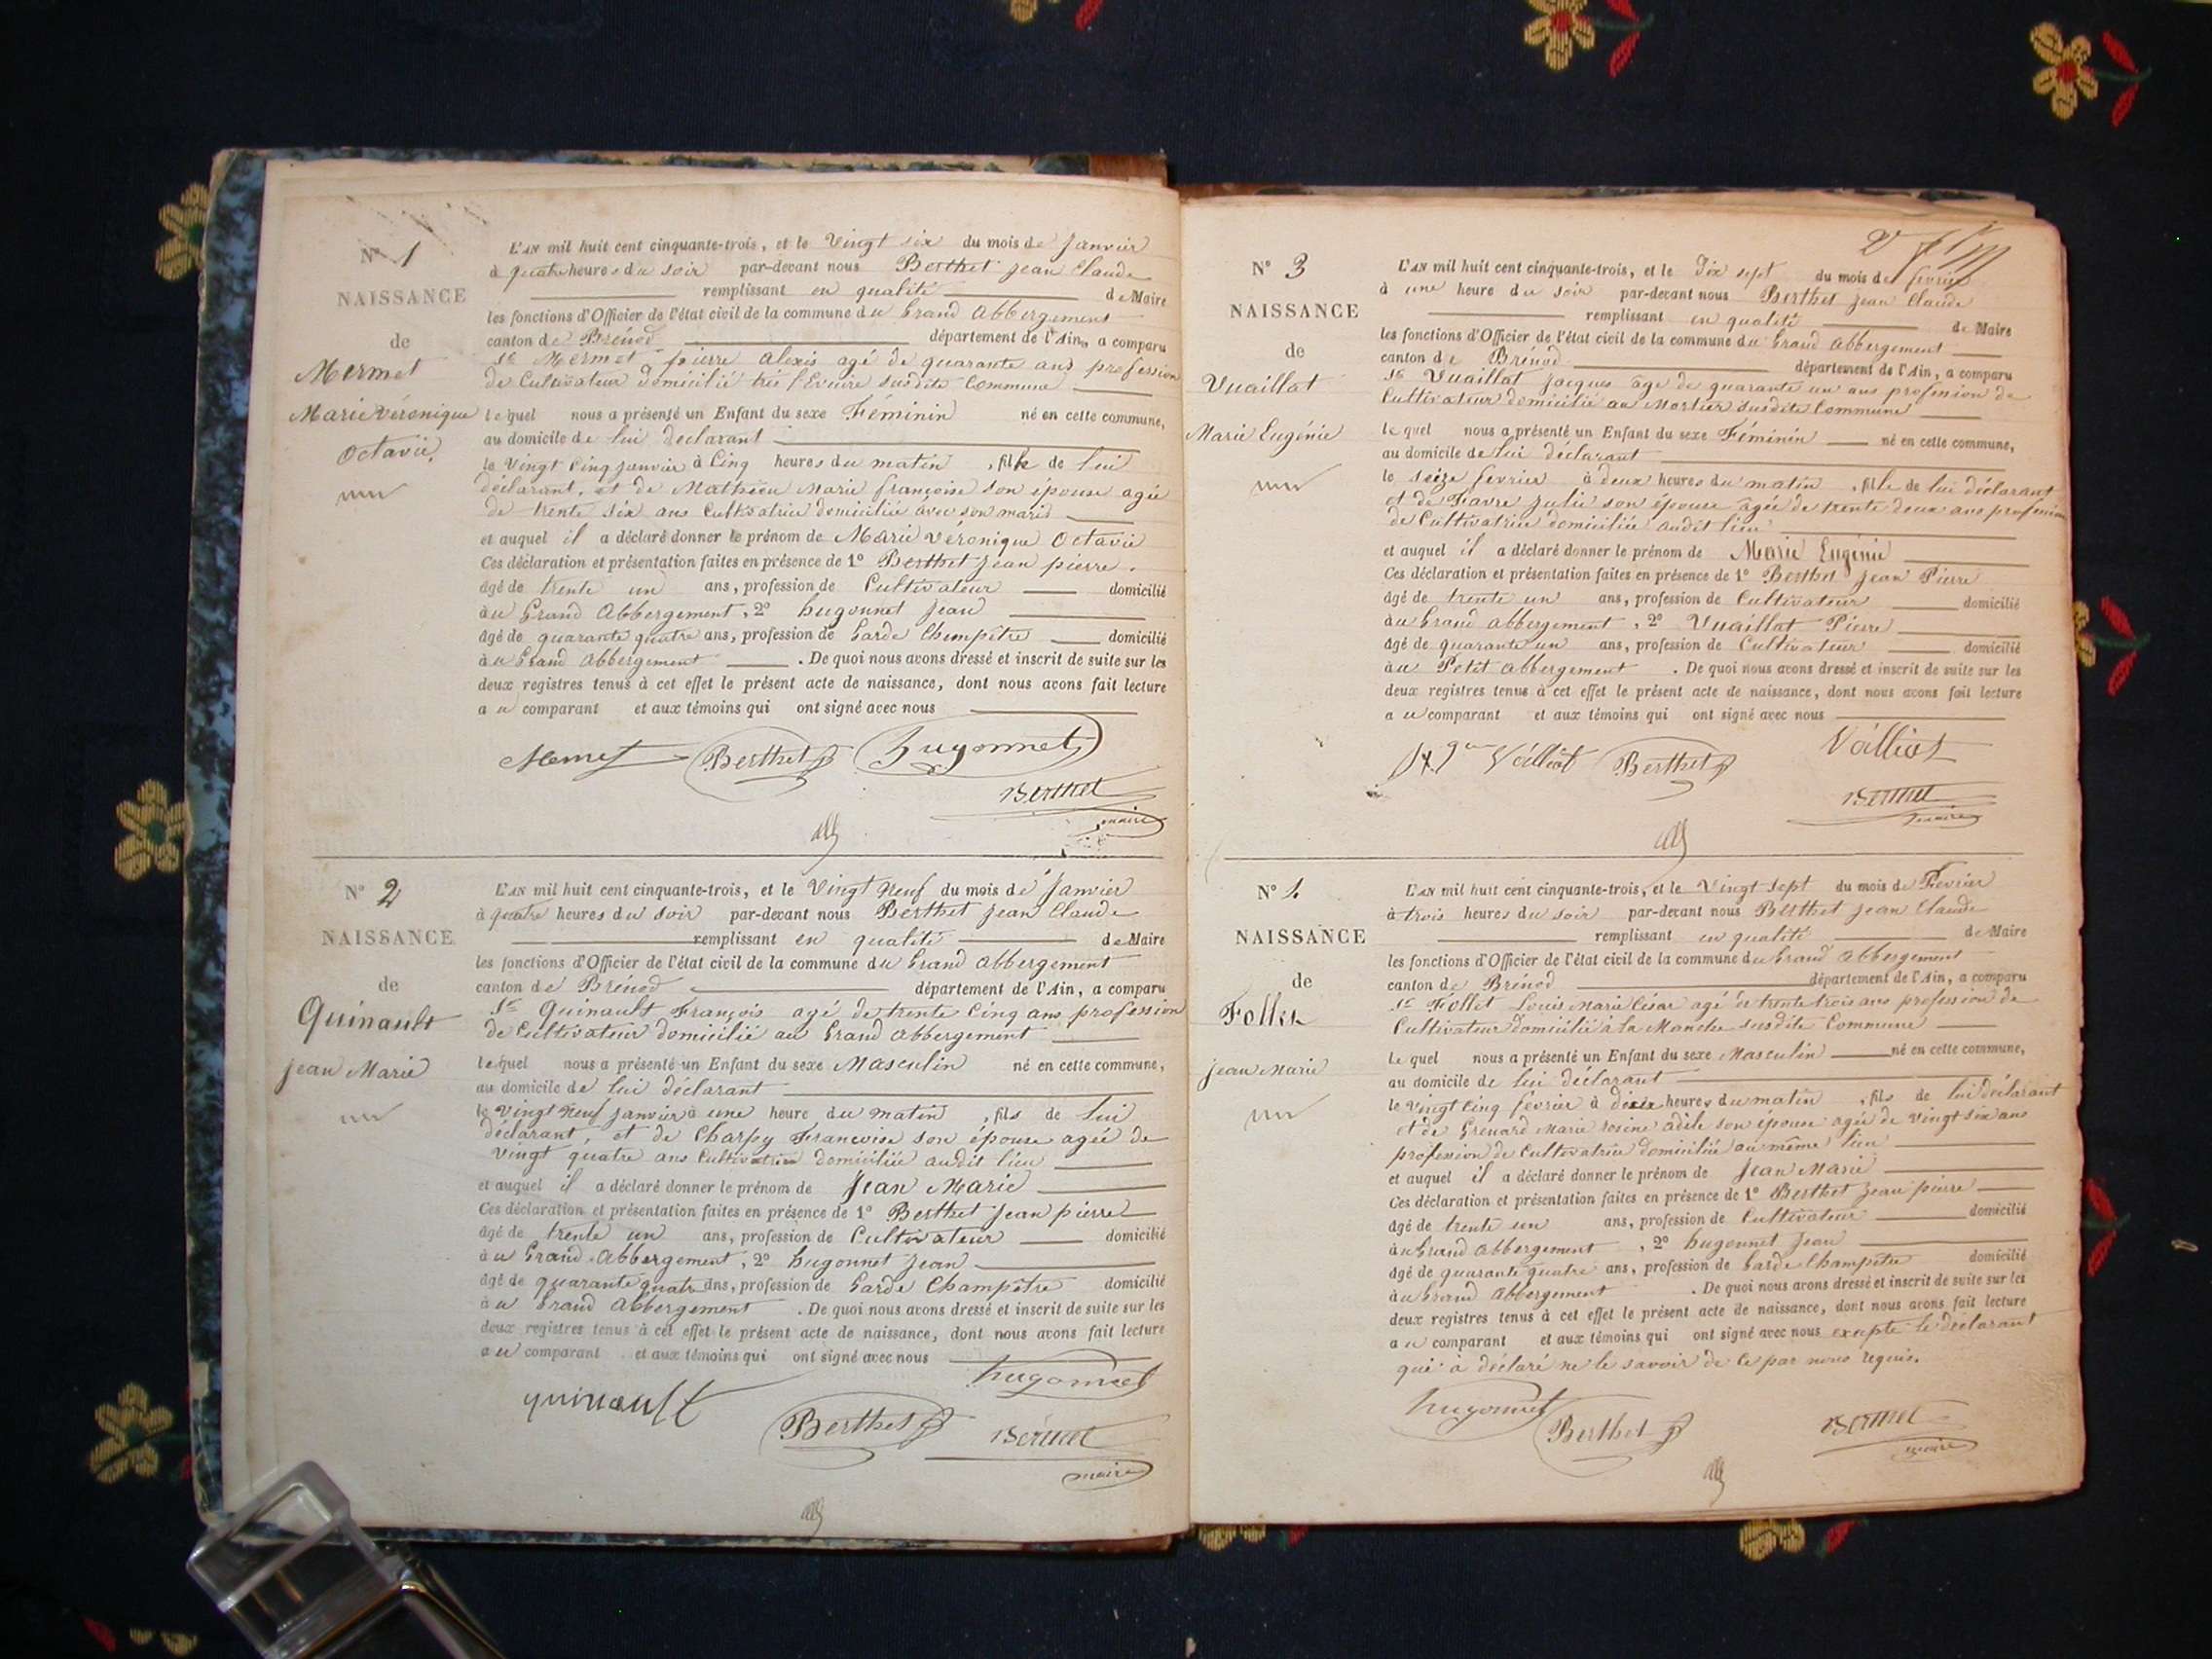 N° 1
NAISSANCE
de
Mermet
Marie Véronique
Octavie
L'AN mil huit cent cinquante-trois, et le Vingt six du mois de Janvier
à quatre heures du soir par-devant nous Berthet Jean Claude
remplissant en qualité de Maire
les fonctions d'Officier de l'état civil de la commune du Grand Abbergement
canton de Brénod département de l'Ain, a comparu
Sr Mermet pierre Alexis agé de quarante ans profession
de Cultivateur domicilié susdite Commune
lequel nous a présenté un Enfant du sexe Féminin né en cette commune,
au domicile de lui declarant
le Vingt Cinq Janvier à Cinq heures du matin, fille de lui
déclarant, et de Mathieu Marie françoise son épouse agée
de trente Six ans Cultivatrice domiciliée avec son mari
et auquel il a déclaré donner le prénom de Marie Véronique Octavie
Ces déclaration et présentation faites en présence de 1° Berthet Jean pierre.
âgé de trente un ans, profession de Cultivateur domicilié
au Grand Abbergement, 2° hugonnet Jean
âgé de quarante quatre ans, profession de Garde Champêtre domicilié
au Grand Abbergement. De quoi nous avons dressé et inscrit de suite sur les
deux registres tenus à cet effet le présent acte de naissance, dont nous avons fait lecture
au comparant et aux témoins qui ont signé avec nous
Mermet Berthet hugonnet
Berthet
maire
N° 2
NAISSANCE
de
Quinault
Jean Marie
L'AN mil huit cent cinquante-trois, et le Vingt Neuf du mois de Janvier
à quatre heures du soir par-devant nous Berthet Jean Claude
remplissant en qualité de Maire
les fonctions d'Officier de l'état civil de la commune du Grand Abbergement
canton de Brénod département de l'Ain, a comparu
Sr Quinault François agé de trente Cinq ans profession
de Cultivateur domicilié au Grand Abbergement
lequel nous a présenté un Enfant du sexe Masculin né en cette commune,
au domicile de lui déclarant
le Vingt Neuf Janvier à une heure du matin, fils de lui
déclarant, et de Charpy Francoise son épouse agée de
Vingt quatre ans Cultivatrice domiciliée audit lieu
et auquel il a déclaré donner le prénom de Jean Marie
Ces déclaration et présentation faites en présence de 1° Berthet Jean pierre
âgé de trente un ans, profession de Cultivateur domicilié
au Grand Abbergement, 2° hugonnet Jean
âgé de quarante quatre ans, profession de Garde Champêtre domicilié
au Grand Abbergement. De quoi nous avons dressé et inscrit de suite sur les
deux registres tenus à cet effet le présent acte de naissance, dont nous avons fait lecture
au comparant et aux témoins qui ont signé avec nous
hugonnet
quinault Berthet Berthet
maire
N° 3
NAISSANCE
de
Vuaillat
Marie Eugénie
L'AN mil huit cent cinquante-trois, et le Dix sept du mois de fevrier
à une heure du soir par-devant nous Berthet Jean Claude
remplissant en qualité de Maire
les fonctions d'Officier de l'état civil de la commune du Grand Abbergement
canton de Brénod département de l'Ain, a comparu
Sr Vuaillat jacques âgé de quarante un ans profession de
Cultivateur domicilié au Mortier susdite Commune
lequel nous a présenté un Enfant du sexe Féminin né en cette commune,
au domicile de lui declarant
le seize fevrier à deux heures du matin, fille de lui déclarant
et de Favre Julie son épouse âgée de trente deux ans profession
de Cultivatrice domiciliée audit lieu
et auquel il a déclaré donner le prénom de Marie Eugénie
Ces déclaration et présentation faites en présence de 1° Berthet Jean Pierre
âgé de trente un ans, profession de Cultivateur domicilié
au Grand Abbergement, 2° Vuaillat Pierre
âgé de quarante un ans, profession de Cultivateur domicilié
au Petit Abbergement. De quoi nous avons dressé et inscrit de suite sur les
deux registres tenus à cet effet le présent acte de naissance, dont nous avons fait lecture
au comparant et aux témoins qui ont signé avec nous
Berthet
Berthet
maire
N° 4
NAISSANCE
de
Follet
Jean Marie
L'AN mil huit cent cinquante-trois, et le Vingt Sept du mois de Fevrier
à trois heures du soir par-devant nous Berthet Jean Claude
remplissant en qualité de Maire
les fonctions d'Officier de l'état civil de la commune du Grand Abbergement
canton de Brénod département de l'Ain, a comparu
Sr Follet Louis Marie César agé de trente trois ans profession de
Cultivateur domicilié à la Manche susdite Commune
lequel nous a présenté un Enfant du sexe Masculin né en cette commune,
au domicile de lui déclarant
le Vingt Cinq fevrier à heures du matin, fils de lui déclarant
et de Grenard Marie rosine adèle son épouse agée de Vingt six ans
profession de Cultivatrice domiciliée au même lieu
et auquel il a déclaré donner le prénom de Jean Marie
Ces déclaration et présentation faites en présence de 1° Berthet Jean pierre
âgé de trente un ans, profession de Cultivateur domicilié
au Grand Abbergement, 2° hugonnet Jean
âgé de quarante quatre ans, profession de Garde Champêtre domicilié
au Grand Abbergement. De quoi nous avons dressé et inscrit de suite sur les
deux registres tenus à cet effet le présent acte de naissance, dont nous avons fait lecture
au comparant et aux témoins qui ont signé avec nous excepté le déclarant
qui a déclaré ne le savoir de ce par nous requis.
hugonnet Berthet Berthet
maire